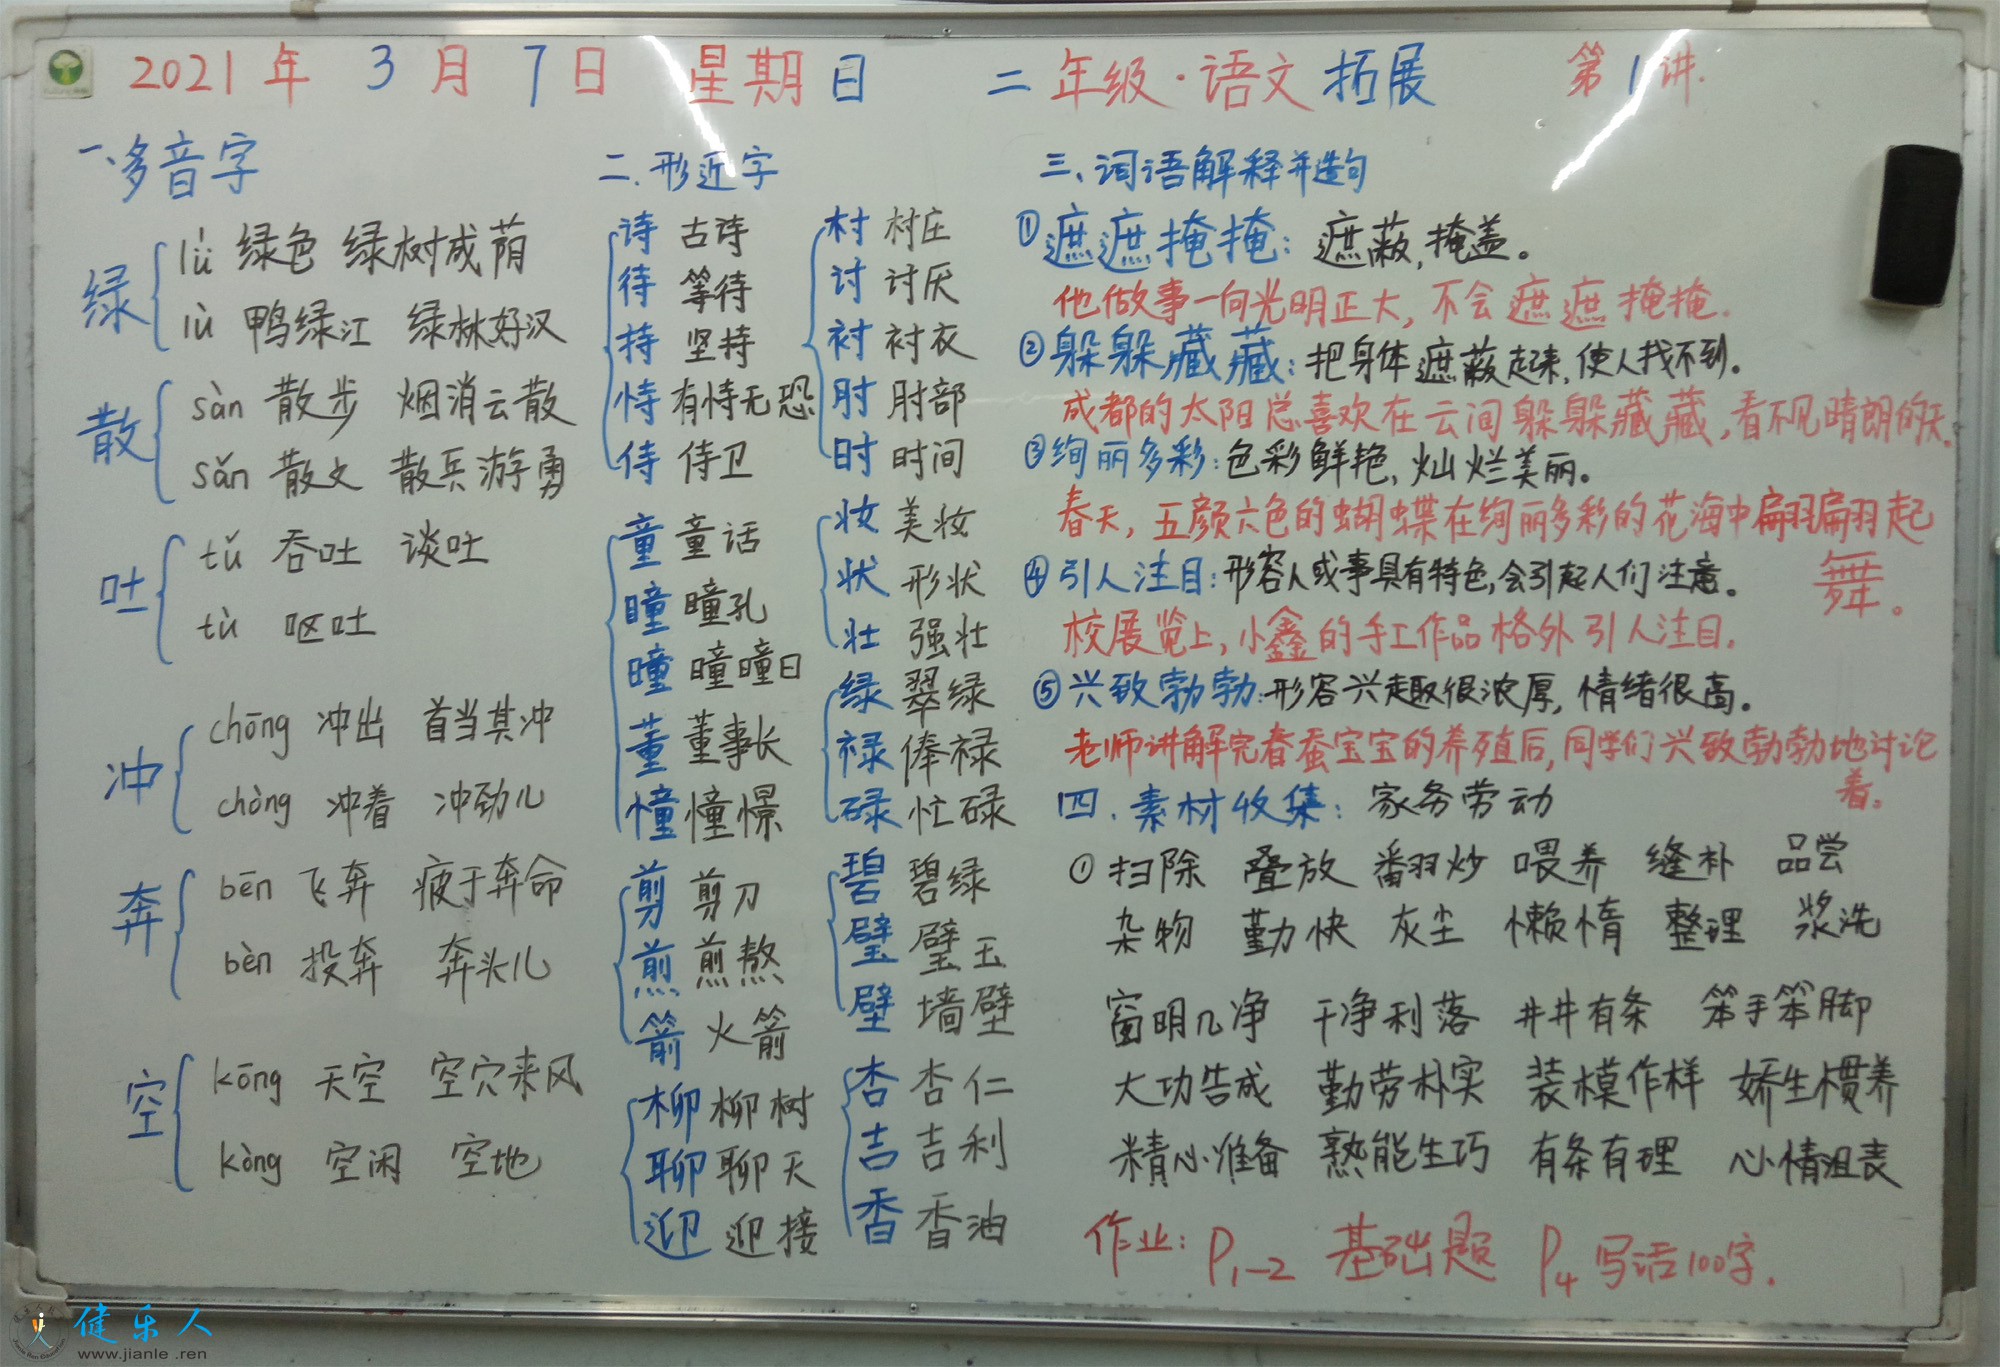 2021年 3月7日 星期日 二年级·语文拓展 第1讲.
一、多音字
绿
lǜ 绿色 绿树成荫
lù 鸭绿江 绿林好汉
散
sàn 散步 烟消云散
sǎn 散文 散兵游勇
吐
tǔ 吞吐 谈吐
tù 呕吐
冲
chōng 冲出 首当其冲
chòng 冲着 冲劲儿
奔
bēn 飞奔 疲于奔命
bèn 投奔 奔头儿
空
kōng 天空 空穴来风
kòng 空闲 空地
二.形近字
诗 古诗
待 等待
持 坚持
恃 有恃无恐
侍 侍卫
童 童话
瞳 瞳孔
曈 曈曈日
董 董事长
憧 憧憬
剪 剪刀
煎 煎熬
箭 火箭
柳 柳树
聊 聊天
迎 迎接
村 村庄
讨 讨厌
衬 衬衣
肘 肘部
时 时间
妆 美妆
状 形状
壮 强壮
绿 翠绿
禄 俸禄
碌 忙碌
碧 碧绿
璧 璧玉
壁 墙壁
杏 杏仁
吉 吉利
香 香油
三、词语解释并造句
①遮遮掩掩：遮蔽,掩盖。
他做事一向光明正大,不会遮遮掩掩.
②躲躲藏藏：把身体遮蔽起来,使人找不到。
成都的太阳总喜欢在云间躲躲藏藏,看不见晴朗的天.
③绚丽多彩：色彩鲜艳,灿烂美丽。
春天,五颜六色的蝴蝶在绚丽多彩的花海中翩翩起
舞。
④引人注目：形容人或事具有特色,会引起人们注意。
校展览上,小鑫的手工作品格外引人注目.
⑤兴致勃勃：形容兴趣很浓厚,情绪很高。
老师讲解完春蚕宝宝的养殖后,同学们兴致勃勃地讨论
着。
四.素材收集：家务劳动
①扫除 叠放 翻炒 喂养 缝补 品尝
杂物 勤快 灰尘 懒惰 整理 浆洗
窗明几净 干净利落 井井有条 笨手笨脚
大功告成 勤劳朴实 装模作样 娇生惯养
精心准备 熟能生巧 有条有理 心情沮丧
作业：P1-2 基础题 P4 写话100字.
健乐人
www.jianle.ren